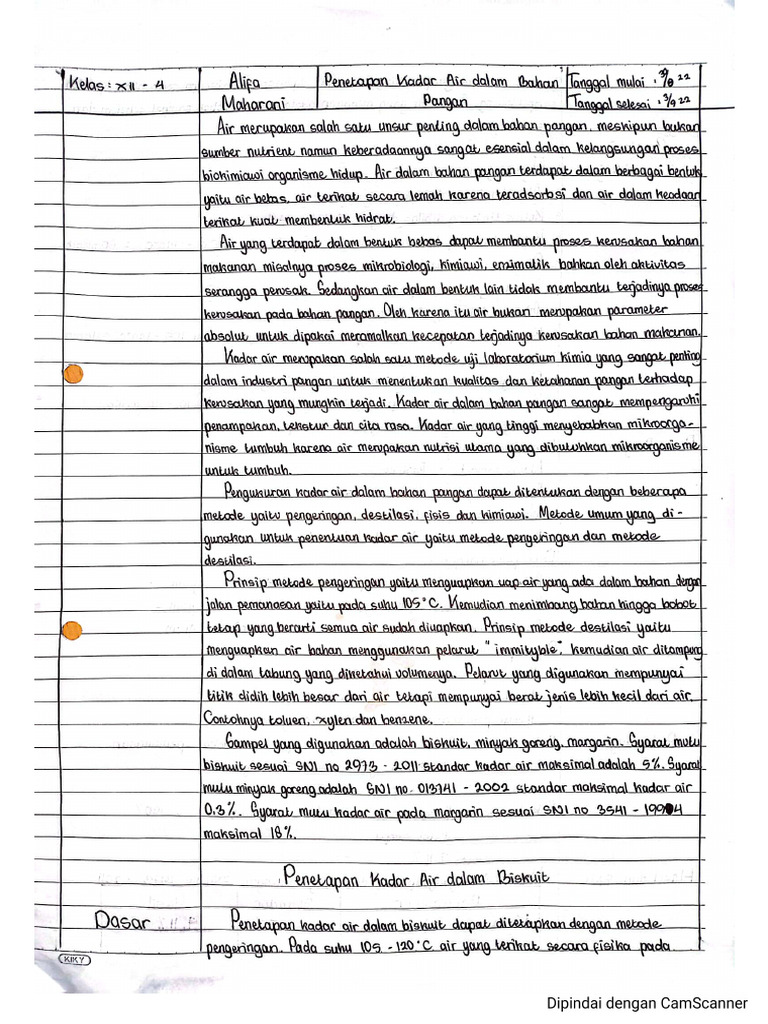 Kelas : XII - 4
Alifa
Maharani
Penetapan Kadar Air dalam Bahan
Pangan
Tanggal mulai : 30/8 22
Tanggal selesai : 3/9 22
Air merupakan salah satu unsur penting dalam bahan pangan, meskipun bukan
sumber nutrient namun keberadaannya sangat esensial dalam kelangsungan proses
biokimiawi organisme hidup. Air dalam bahan pangan terdapat dalam berbagai bentuk
yaitu air bebas, air terikat secara lemah karena teradsorbsi dan air dalam keadaan
terikat kuat membentuk hidrat.
Air yang terdapat dalam bentuk bebas dapat membantu proses kerusakan bahan
makanan misalnya proses mikrobiologi, kimiawi, enzimatik bahkan oleh aktivitas
serangga perusak. Sedangkan air dalam bentuk lain tidak membantu terjadinya proses
kerusakan pada bahan pangan. Oleh karena itu air bukan merupakan parameter
absolut untuk dipakai meramalkan kecepatan terjadinya kerusakan bahan makanan.
Kadar air merupakan salah satu metode uji laboratorium kimia yang sangat penting
dalam industri pangan untuk menentukan kualitas dan ketahanan pangan terhadap
kerusakan yang mungkin terjadi. Kadar air dalam bahan pangan sangat mempengaruhi
penampakan, tekstur dan cita rasa. Kadar air yang tinggi menyebabkan mikroorga-
nisme tumbuh karena air merupakan nutrisi utama yang dibutuhkan mikroorganisme
untuk tumbuh.
Pengukuran kadar air dalam bahan pangan dapat ditentukan dengan beberapa
metode yaitu pengeringan, destilasi, fisis dan kimiawi. Metode umum yang di-
gunakan untuk penentuan kadar air yaitu metode pengeringan dan metode
destilasi.
Prinsip metode pengeringan yaitu menguapkan uap air yang ada dalam bahan dengan
jalan pemanasan yaitu pada suhu 105°C. Kemudian menimbang bahan hingga bobot
tetap yang berarti semua air sudah diuapkan. Prinsip metode destilasi yaitu
menguapkan air bahan menggunakan pelarut "immityble", kemudian air ditampung
di dalam tabung yang diketahui volumenya. Pelarut yang digunakan mempunyai
titik didih lebih besar dari air tetapi mempunyai berat jenis lebih kecil dari air.
Contohnya toluen, xylen dan benzene.
Sampel yang digunakan adalah biskuit, minyak goreng, margarin. Syarat mutu
biskuit sesuai SNI no 2973 - 2011 standar kadar air maksimal adalah 5%. Syarat
mutu minyak goreng adalah SNI no. 013741 - 2002 standar maksimal kadar air
0.3%. Syarat mutu kadar air pada margarin sesuai SNI no 3541 - 1994
maksimal 18%.
Penetapan Kadar Air dalam Biskuit
Dasar
Penetapan kadar air dalam biskuit dapat ditetapkan dengan metode
pengeringan. Pada suhu 105 - 120°C air yang terikat secara fisika pada
KIKY
Dipindai dengan CamScanner